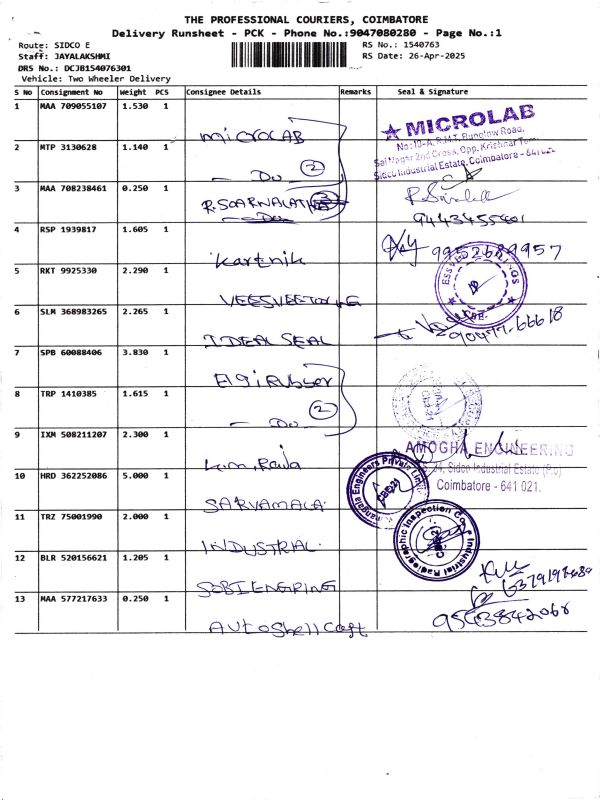 THE PROFESSIONAL COURIERS, COIMBATORE
Delivery Runsheet - PCK - Phone No.:9047080280 - Page No.:1
Route: SIDCO E
RS No.: 1540763
Staff: JAYALAKSHMI
RS Date: 26-Apr-2025
DRS No.: DCJB154076301
Vehicle: Two Wheeler Delivery
S No Consignment No Weight PCS Consignee Details Remarks Seal & Signature
1 MAA 709055107 1.530 1 microLAB
★ MICROLAB
No:10-A, R.M.T. Bunglow Road,
Sai Nagar 2nd Cross, Opp. Krishnar Temple
Sidco Industrial Estate, Coimbatore - 641 021.
2 MTP 3130628 1.140 1 - Do - 2
3 MAA 708238461 0.250 1
9443455801
4 RSP 1939817 1.605 1 Karthik
9952689957
5 RKT 9925330 2.290 1
6 SLM 368983265 2.265 1 IDEAL SEAL
90477-66618
7 SPB 60088406 3.830 1 Elgi Rubber
8 TRP 1410385 1.615 1 - Do - 2
9 IXM 508211207 2.300 1 L.m. Raja
AMOGHA ENGINEERING
34, Sidco Industrial Estate (P.o)
Coimbatore - 641 021.
10 HRD 362252086 5.000 1 SARVAMALA
Engineers Private Limi
CBE-21
11 TRZ 75001990 2.000 1 INDUSTRIAL
Industrial Radiographic Inspection Co
12 BLR 520156621 1.205 1 SOBI ENGRING
6379197689
13 MAA 577217633 0.250 1 Autoshell cast
9543842068